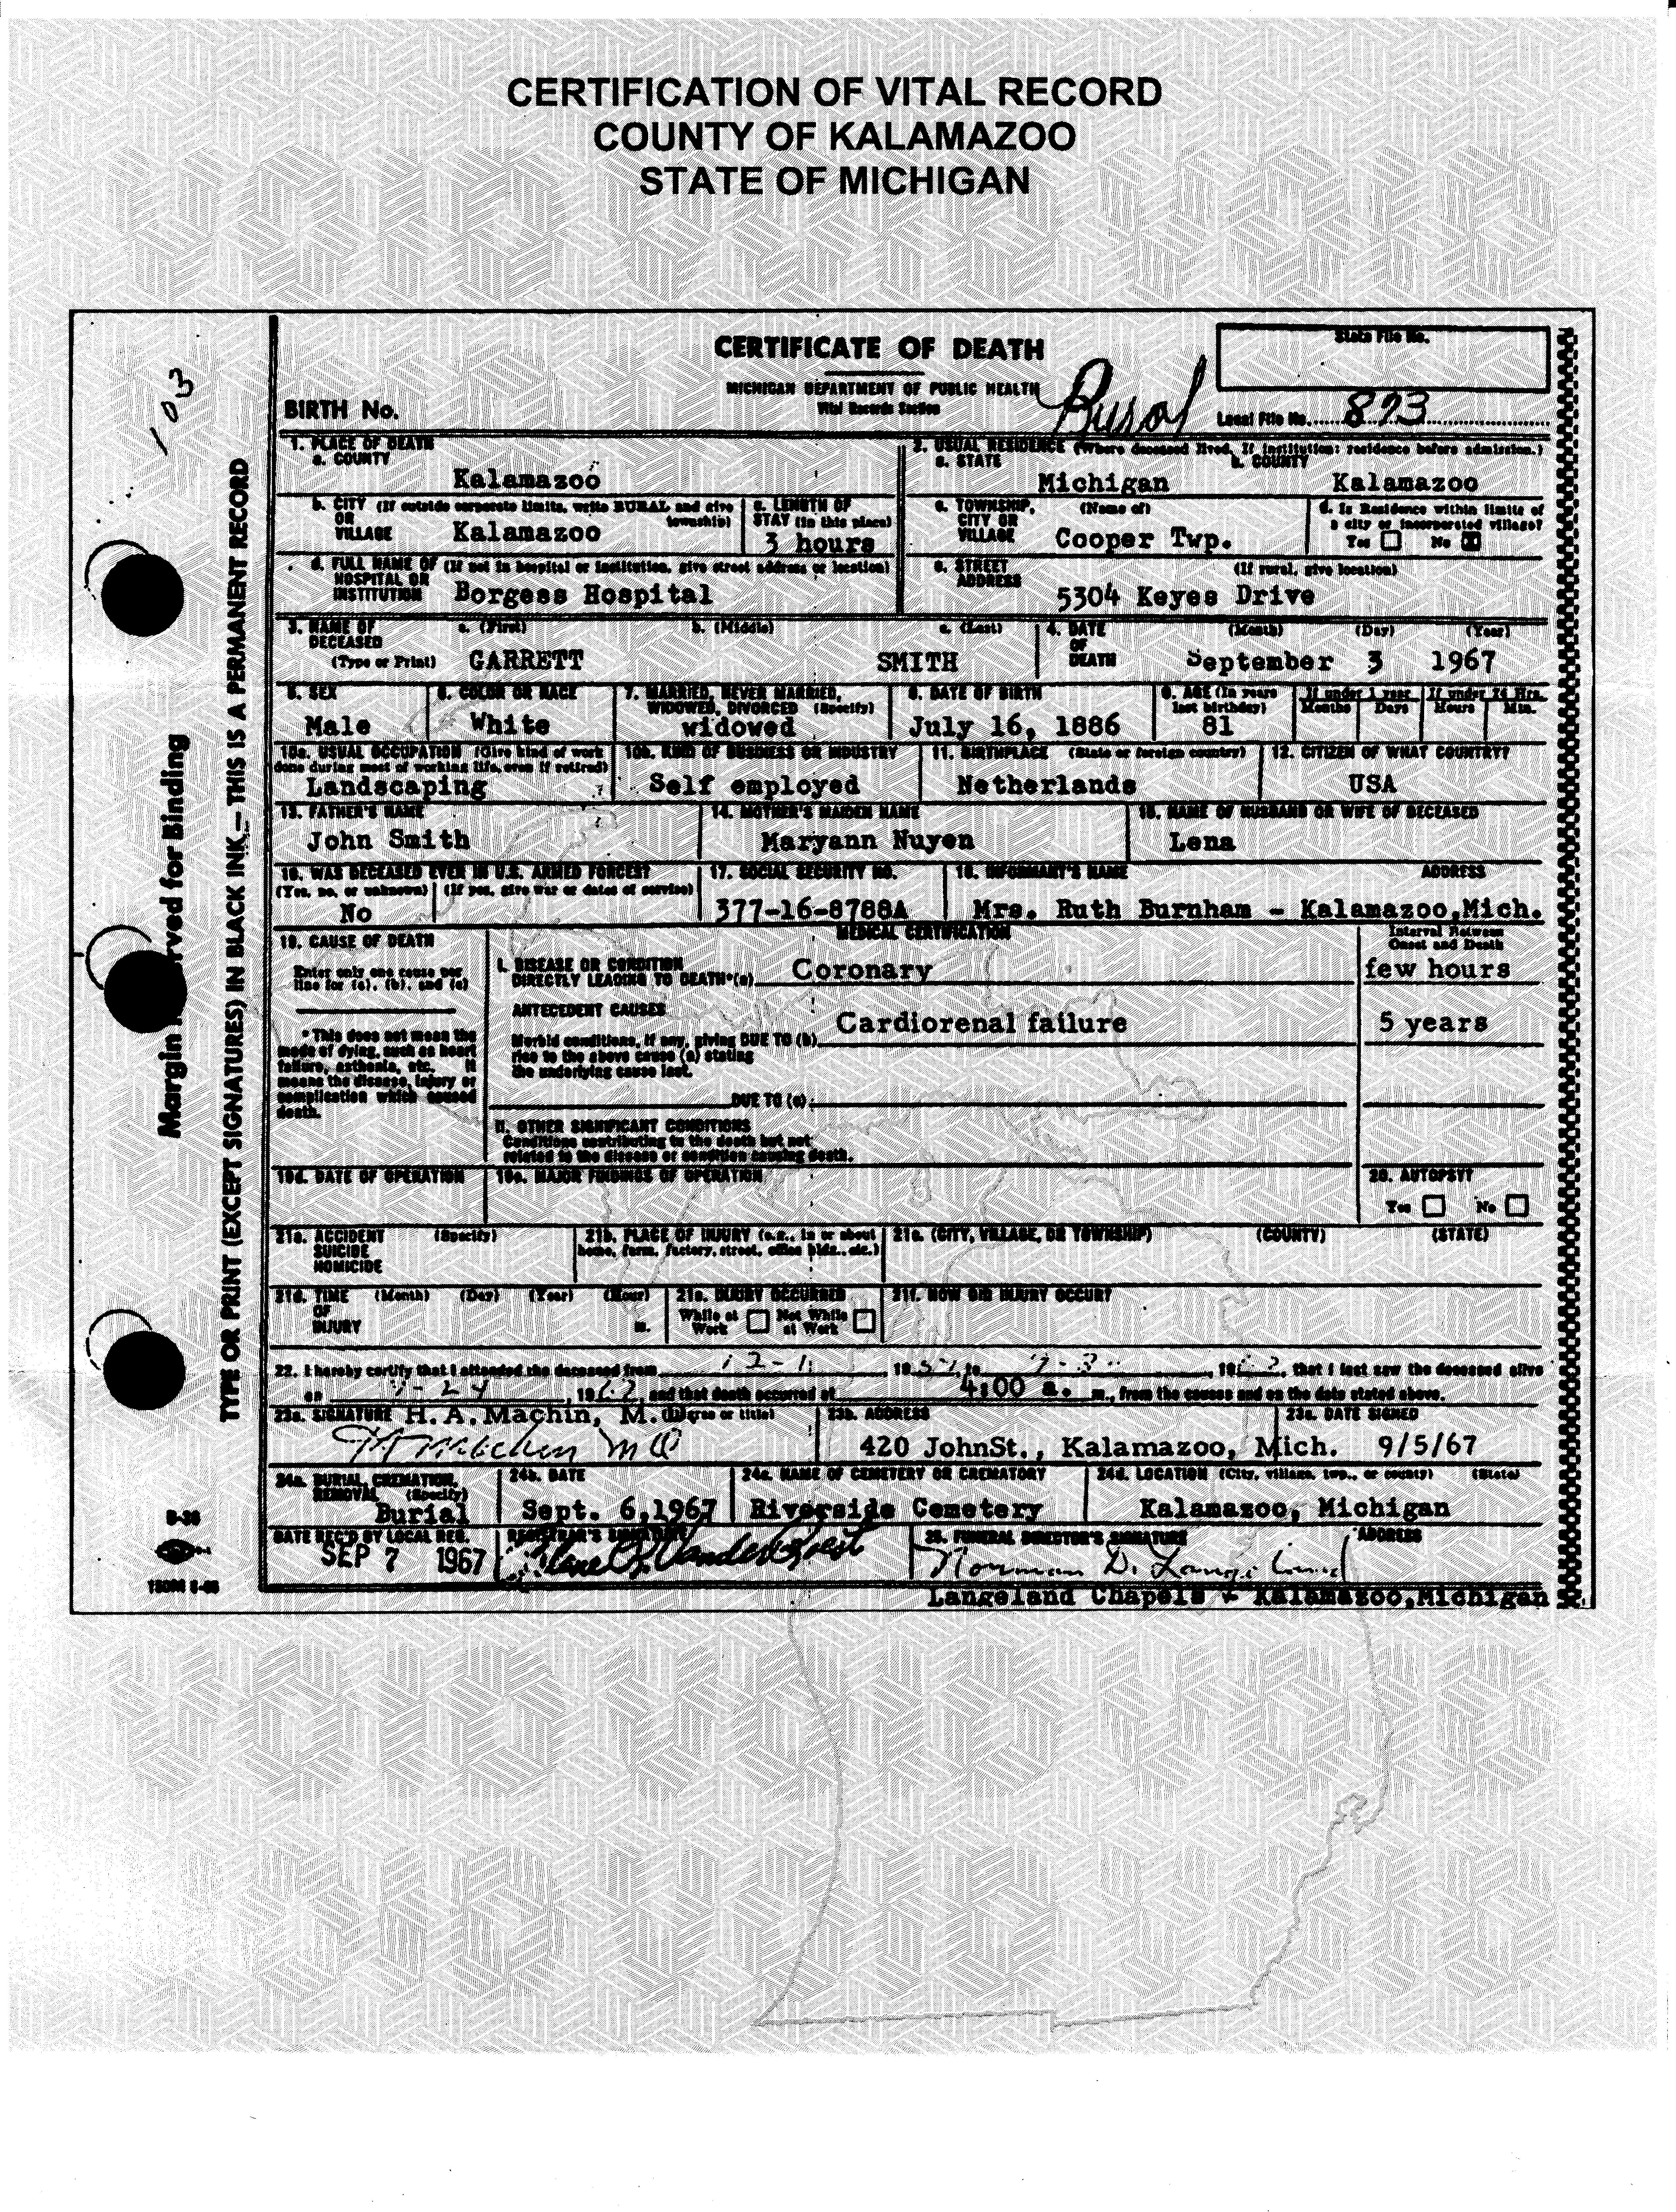 CERTIFICATION OF VITAL RECORD
COUNTY OF KALAMAZOO
STATE OF MICHIGAN
103
Margin
rved for Binding
TYPE OR PRINT (EXCEPT SIGNATURES) IN BLACK INK — THIS IS A PERMANENT RECORD
CERTIFICATE OF DEATH
State File No.
MICHIGAN DEPARTMENT OF PUBLIC HEALTH
Vital Records Section
BIRTH No.
Local File No. 893
1. PLACE OF DEATH
a. COUNTY
Kalamazoo
2. USUAL RESIDENCE (Where deceased lived, If institution: residence before admission.)
a. STATE
b. COUNTY
Michigan
Kalamazoo
b. CITY (If outside corporate limits, write RURAL and give township)
OR
VILLAGE
Kalamazoo
c. LENGTH OF
STAY (in this place)
3 hours
c. TOWNSHIP, (Name of)
CITY OR
VILLAGE
Cooper Twp.
d. Is Residence within limits of
a city or incorporated village?
Yes No X
d. FULL NAME OF (If not in hospital or institution, give street address or location)
HOSPITAL OR
INSTITUTION
Borgess Hospital
e. STREET
ADDRESS
(If rural, give location)
5304 Keyes Drive
3. NAME OF
DECEASED
(Type or Print)
a. (First)
b. (Middle)
c. (Last)
GARRETT
SMITH
4. DATE
OF
DEATH
(Month) (Day) (Year)
September 3 1967
5. SEX
Male
6. COLOR OR RACE
White
7. MARRIED, NEVER MARRIED,
WIDOWED, DIVORCED (Specify)
widowed
8. DATE OF BIRTH
July 16, 1886
9. AGE (In years
last birthday)
81
If under 1 year
Months Days
If under 24 Hrs.
Hours Min.
10a. USUAL OCCUPATION (Give kind of work
done during most of working life, even if retired)
Landscaping
10b. KIND OF BUSINESS OR INDUSTRY
Self employed
11. BIRTHPLACE (State or foreign country)
Netherlands
12. CITIZEN OF WHAT COUNTRY?
USA
13. FATHER'S NAME
John Smith
14. MOTHER'S MAIDEN NAME
Maryann Nuyen
15. NAME OF HUSBAND OR WIFE OF DECEASED
Lena
16. WAS DECEASED EVER IN U.S. ARMED FORCES?
(Yes, no, or unknown) (If yes, give war or dates of service)
No
17. SOCIAL SECURITY NO.
377-16-8788A
18. INFORMANT'S NAME
ADDRESS
Mrs. Ruth Burnham - Kalamazoo,Mich.
19. CAUSE OF DEATH
Enter only one cause per
line for (a), (b), and (c)
*This does not mean the
mode of dying, such as heart
failure, asthenia, etc. It
means the disease, injury or
complication which caused
death.
MEDICAL CERTIFICATION
Interval Between
Onset and Death
I. DISEASE OR CONDITION
DIRECTLY LEADING TO DEATH*(a)
Coronary
few hours
ANTECEDENT CAUSES
Morbid conditions, if any, giving DUE TO (b)
rise to the above cause (a) stating
the underlying cause last.
Cardiorenal failure
5 years
DUE TO (c)
II. OTHER SIGNIFICANT CONDITIONS
Conditions contributing to the death but not
related to the disease or condition causing death.
19d. DATE OF OPERATION
19e. MAJOR FINDINGS OF OPERATION
20. AUTOPSY?
Yes No
21a. ACCIDENT (Specify)
SUICIDE
HOMICIDE
21b. PLACE OF INJURY (e.g., in or about
home, farm, factory, street, office bldg., etc.)
21c. (CITY, VILLAGE, OR TOWNSHIP) (COUNTY) (STATE)
21d. TIME (Month) (Day) (Year) (Hour)
OF
INJURY
m.
21e. INJURY OCCURRED
While at Work Not While at Work
21f. HOW DID INJURY OCCUR?
22. I hereby certify that I attended the deceased from 12-1, 19 to 9-3, 19 , that I last saw the deceased alive
on , 1967, and that death occurred at 4:00 a. m., from the causes and on the date stated above.
23a. SIGNATURE (Degree or title)
H. A. Machin, M.
23b. ADDRESS
420 JohnSt., Kalamazoo, Mich.
23c. DATE SIGNED
9/5/67
24a. BURIAL, CREMATION,
REMOVAL (Specify)
Burial
24b. DATE
Sept. 6,1967
24c. NAME OF CEMETERY OR CREMATORY
Riverside Cemetery
24d. LOCATION (City, village, twp., or county) (State)
Kalamazoo, Michigan
DATE REC'D BY LOCAL REG.
SEP 7 1967
REGISTRAR'S SIGNATURE
25. FUNERAL DIRECTOR'S SIGNATURE
ADDRESS
Norman D. Langeland
Langeland Chapels - Kalamazoo,Michigan
B-36